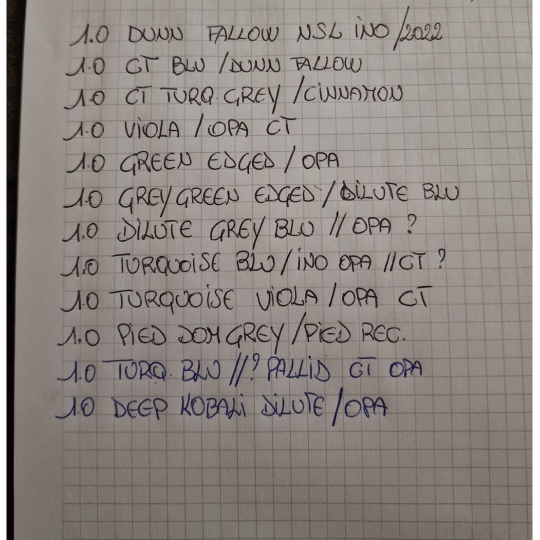 1.0 DUNN FALLOW NSL iNO/2022
1.0 CT BLU /DUNN FALLOW
1.0 CT TURQ. GREY /CINNAMON
1.0 VIOLA / OPA CT
1.0 GREEN EDGED / OPA
1.0 GREYGREEN EDGED / DILUTE BLU
1.0 DILUTE GREY BLU // OPA ?
1.0 TURQUOISE BLU / iNO OPA // CT ?
1.0 TURQUOISE VIOLA / OPA CT
1.0 PIED DOM GREY /PIED REC.
1.0 TURQ. BLU //? PALLID CT OPA
1.0 DEEP KOBALi DILUTE /OPA